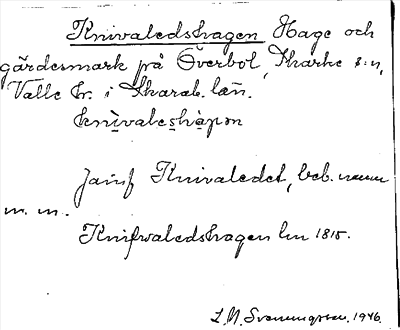 Knivaledshagen Hage och
gärdesmark på Överbol, Skarke s:n,
Valle hr. i Skarab. län.
knivaleshàgən
Jämf Knivaledet, beb. namn
m. m.
Knifwaledshagen Lm 1815.
L. N. Svenungsson. 1946.